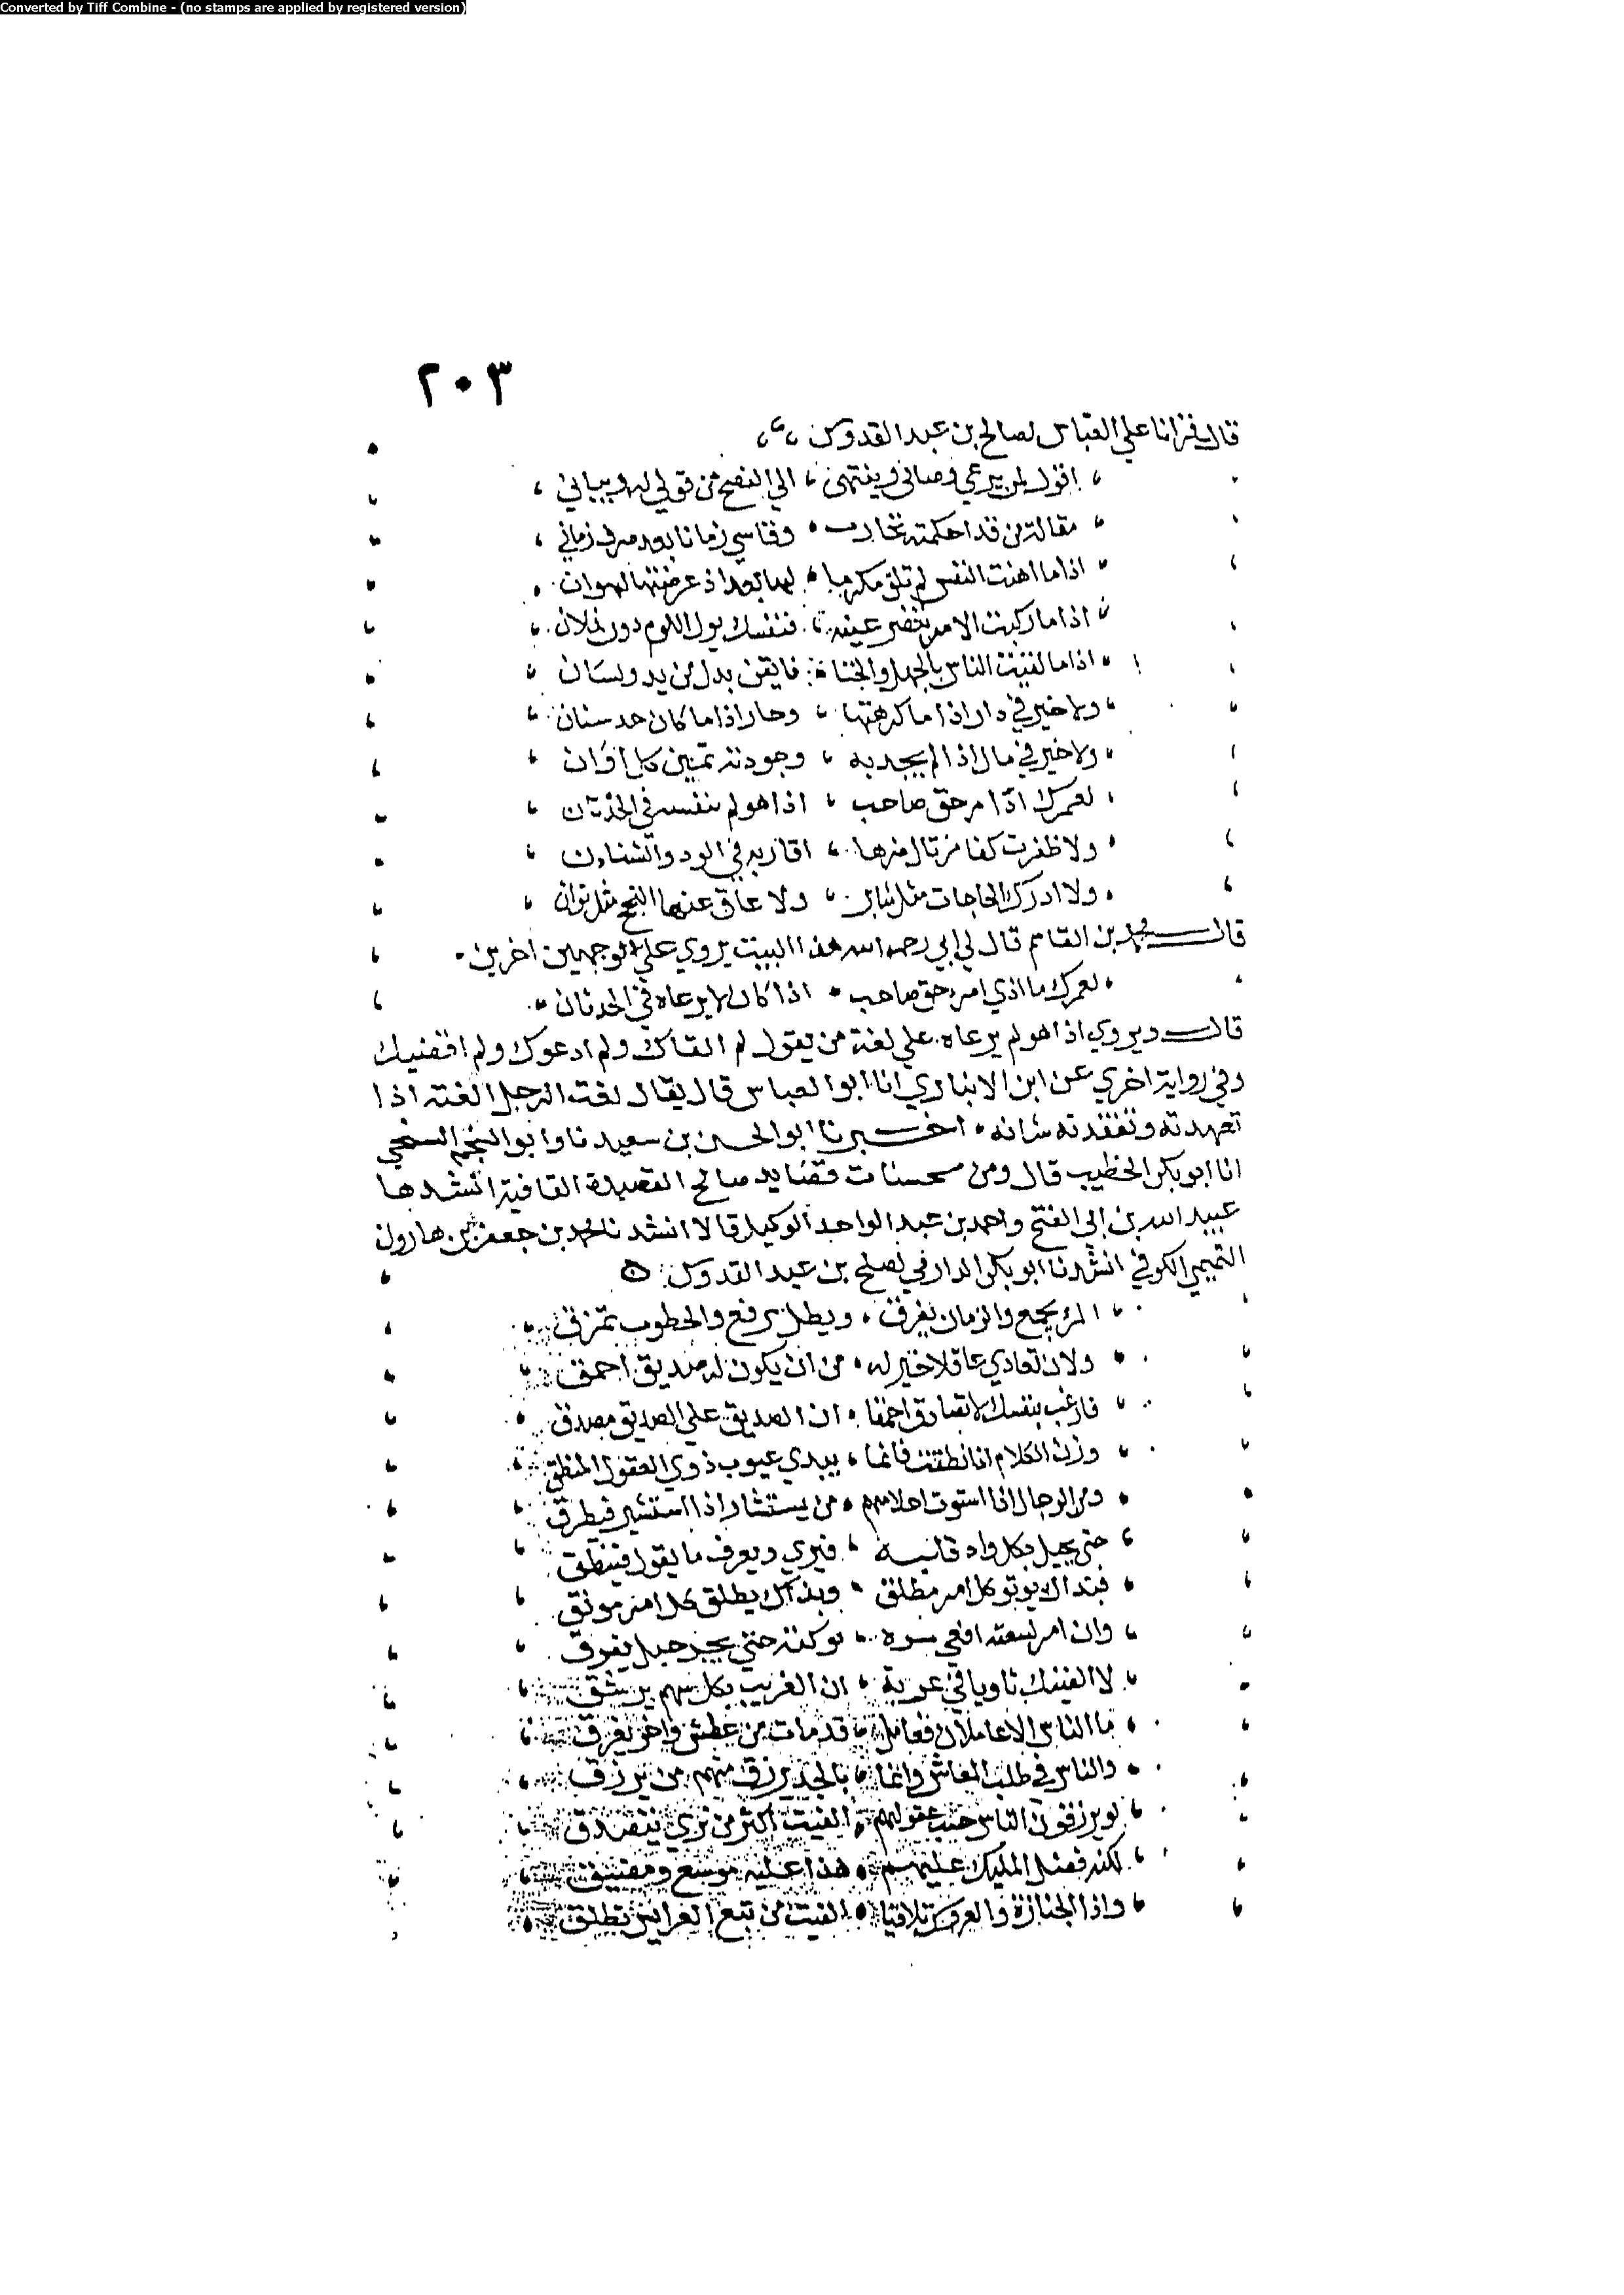 Converted by Tiff Combine - (no stamps are applied by registered version)
٢٠٣
قال قرانا علي العباس لصالح بن عبد القدوس
اقول لمن يرعي وصاتي وينتهي الي النصح من قولي له وبياني
مقالة من قد احكمته تجارب وقاسي زمانا بعد صرف زماني
اذا ما اهنت النفس لم تلق مكرما لها بعد اذ عرضتها لهوان
اذا ما ركبت الامر فنفسك يول اللوم دون فلان
اذا ما لقيت الناس بالجهل والخنا فايقن بذل من يد ولسان
ولا خير في دار اذا ما كرهتها وجار اذا ما كان حد سنان
ولا خير في مال اذا لم يجد به كل اوان
لعمرك حق صاحب اذا هو لم في الحدثان
ولا ظفرت كفا اقاربه في الود والشنان
ولا ادرك الحاجات مثل مثابر ولا عاق عنها النجح مثل توان
قال محمد بن القاسم قال لي ابي رحمه الله هذا البيت يروي علي الوجهين اخرين
لعمرك ما ادي امر حق صاحب اذا كان لا يرعاه في الحدثان
قال ويروي اذا هو لم يرعاه علي لغة من يقول لم القاك ولم ادعوك ولم اقضيك
وفي رواية اخري عن ابن الانباري انا ابو العباس قال يقال الرجل اذا
تعهدته وتفقدته شانه اخبرنا ابو الحسن بن سعيد نا وابو النجم
انا ابو بكر الخطيب قال ومن مستحسنات قصايد صالح القصيدة القافية انشدها
عبيد الله بن ابي الفتح واحمد بن عبد الواحد الوكيل قالا انشدنا محمد بن جعفر بن هارون
التميمي الكوفي انشدنا ابو بكر الدارمي لصلح بن عبد القدوس
المرء يجمع والزمان يفرق ويظل يرقع والخطوب تمزق
ولان تعادي عاقلا خير له من ان يكون له صديق احمق
فارغب بنفسك لا تصادق احمقا ان الصديق علي الصديق مصدق
وزن الكلام اذا نطقت فانما يبدي عيوب ذوي العقول المنطق
ومن الرجال اذا استوت احلامهم من يستشار اذا استشير فيطرق
حتي يجيل بكل واد قلبه فيري ويعرف ما يقول فينطق
فبذاك يوثق كل امر مطلق وبذاك يطلق كل امر موثق
وان امرء لسعته افعي مرة تركته حتي يجر حبل يفرق
لا الفينك ثاويا في غربة ان الغريب بكل سهم يرشق
ما الناس الا عاملان فعامل قد مات من عطش واخر يغرق
والناس في طلب المعاش وانما بالجد يرزق منهم من يرزق
لو يرزقون الناس حسب عقولهم الفيت اكثر من تري يتصدق
لكنه فضل المليك عليهم هذا عليه موسع ومضيق
واذا الجنازة والعروس تلاقيا الفيت من تبع العرايس تطلق